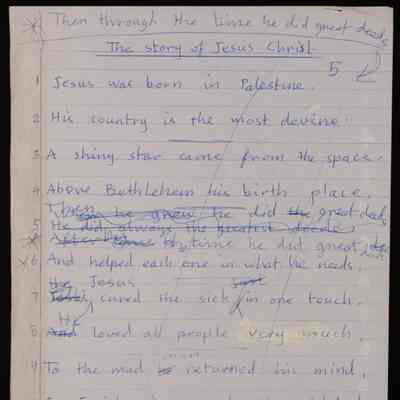 Then through the time he did great deeds
The story of Jesus Christ.
5
1 Jesus was born in Palestine.
2 His country is the most devine
3 A shiny star came from the space.
4 Above Bethlehem his birth place.
Then he grew he did the great deeds
5 He did always the greatest deeds
time he did great
6 And helped each one in what he needs.
He Jesus
7 cured the sick in one touch.
He
8 And loved all people very much.
9 To the mad he returned his mind.